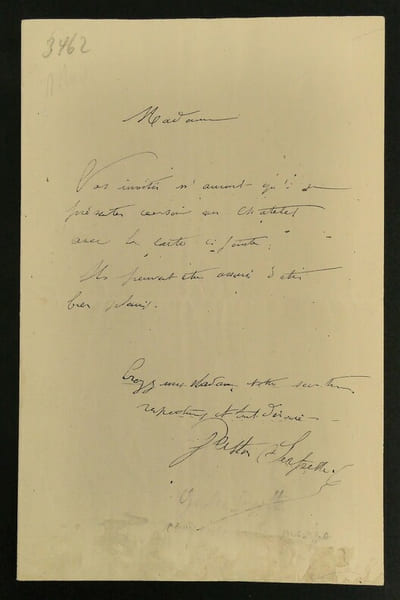 3462
Madame
Vos invités n'auront qu'à se
présenter ce soir au Châtelet
avec la carte ci jointe.
Ils peuvent être assuré d'être
bien placés.
Croyez moi Madame votre
respectueux et tout dévoué
Gaston Serpette